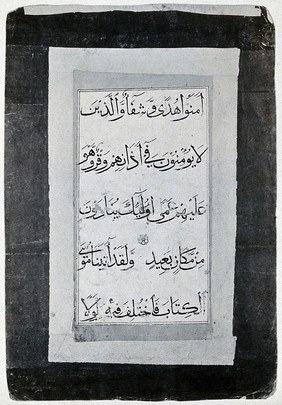 اٰمنوا هُدًى وَشِفَآءٌ وَالَّذِينَ
لا يؤمنون فِي اٰذانهم وَقْرٌ وَهُوَ
عَلَيْهِمْ عَمًى اُولٰٓئك يُنَادَوْنَ
مِن مَكَانٍ بَعِيدٍ وَلَقَد اٰتَيْنَا مُوسَى
الْكِتَابَ فَاخْتُلِفَ فِيهِ لَوْلَا